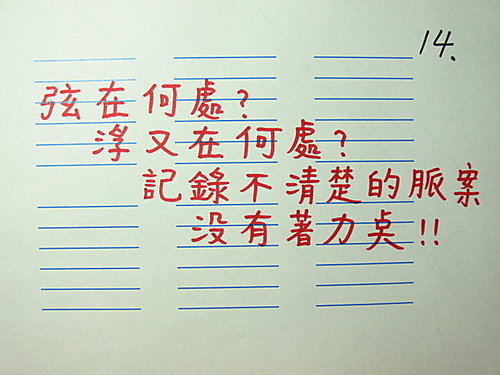 14.
弦在何處?
浮又在何處?
記錄不清楚的脈案
没有著力奌!!